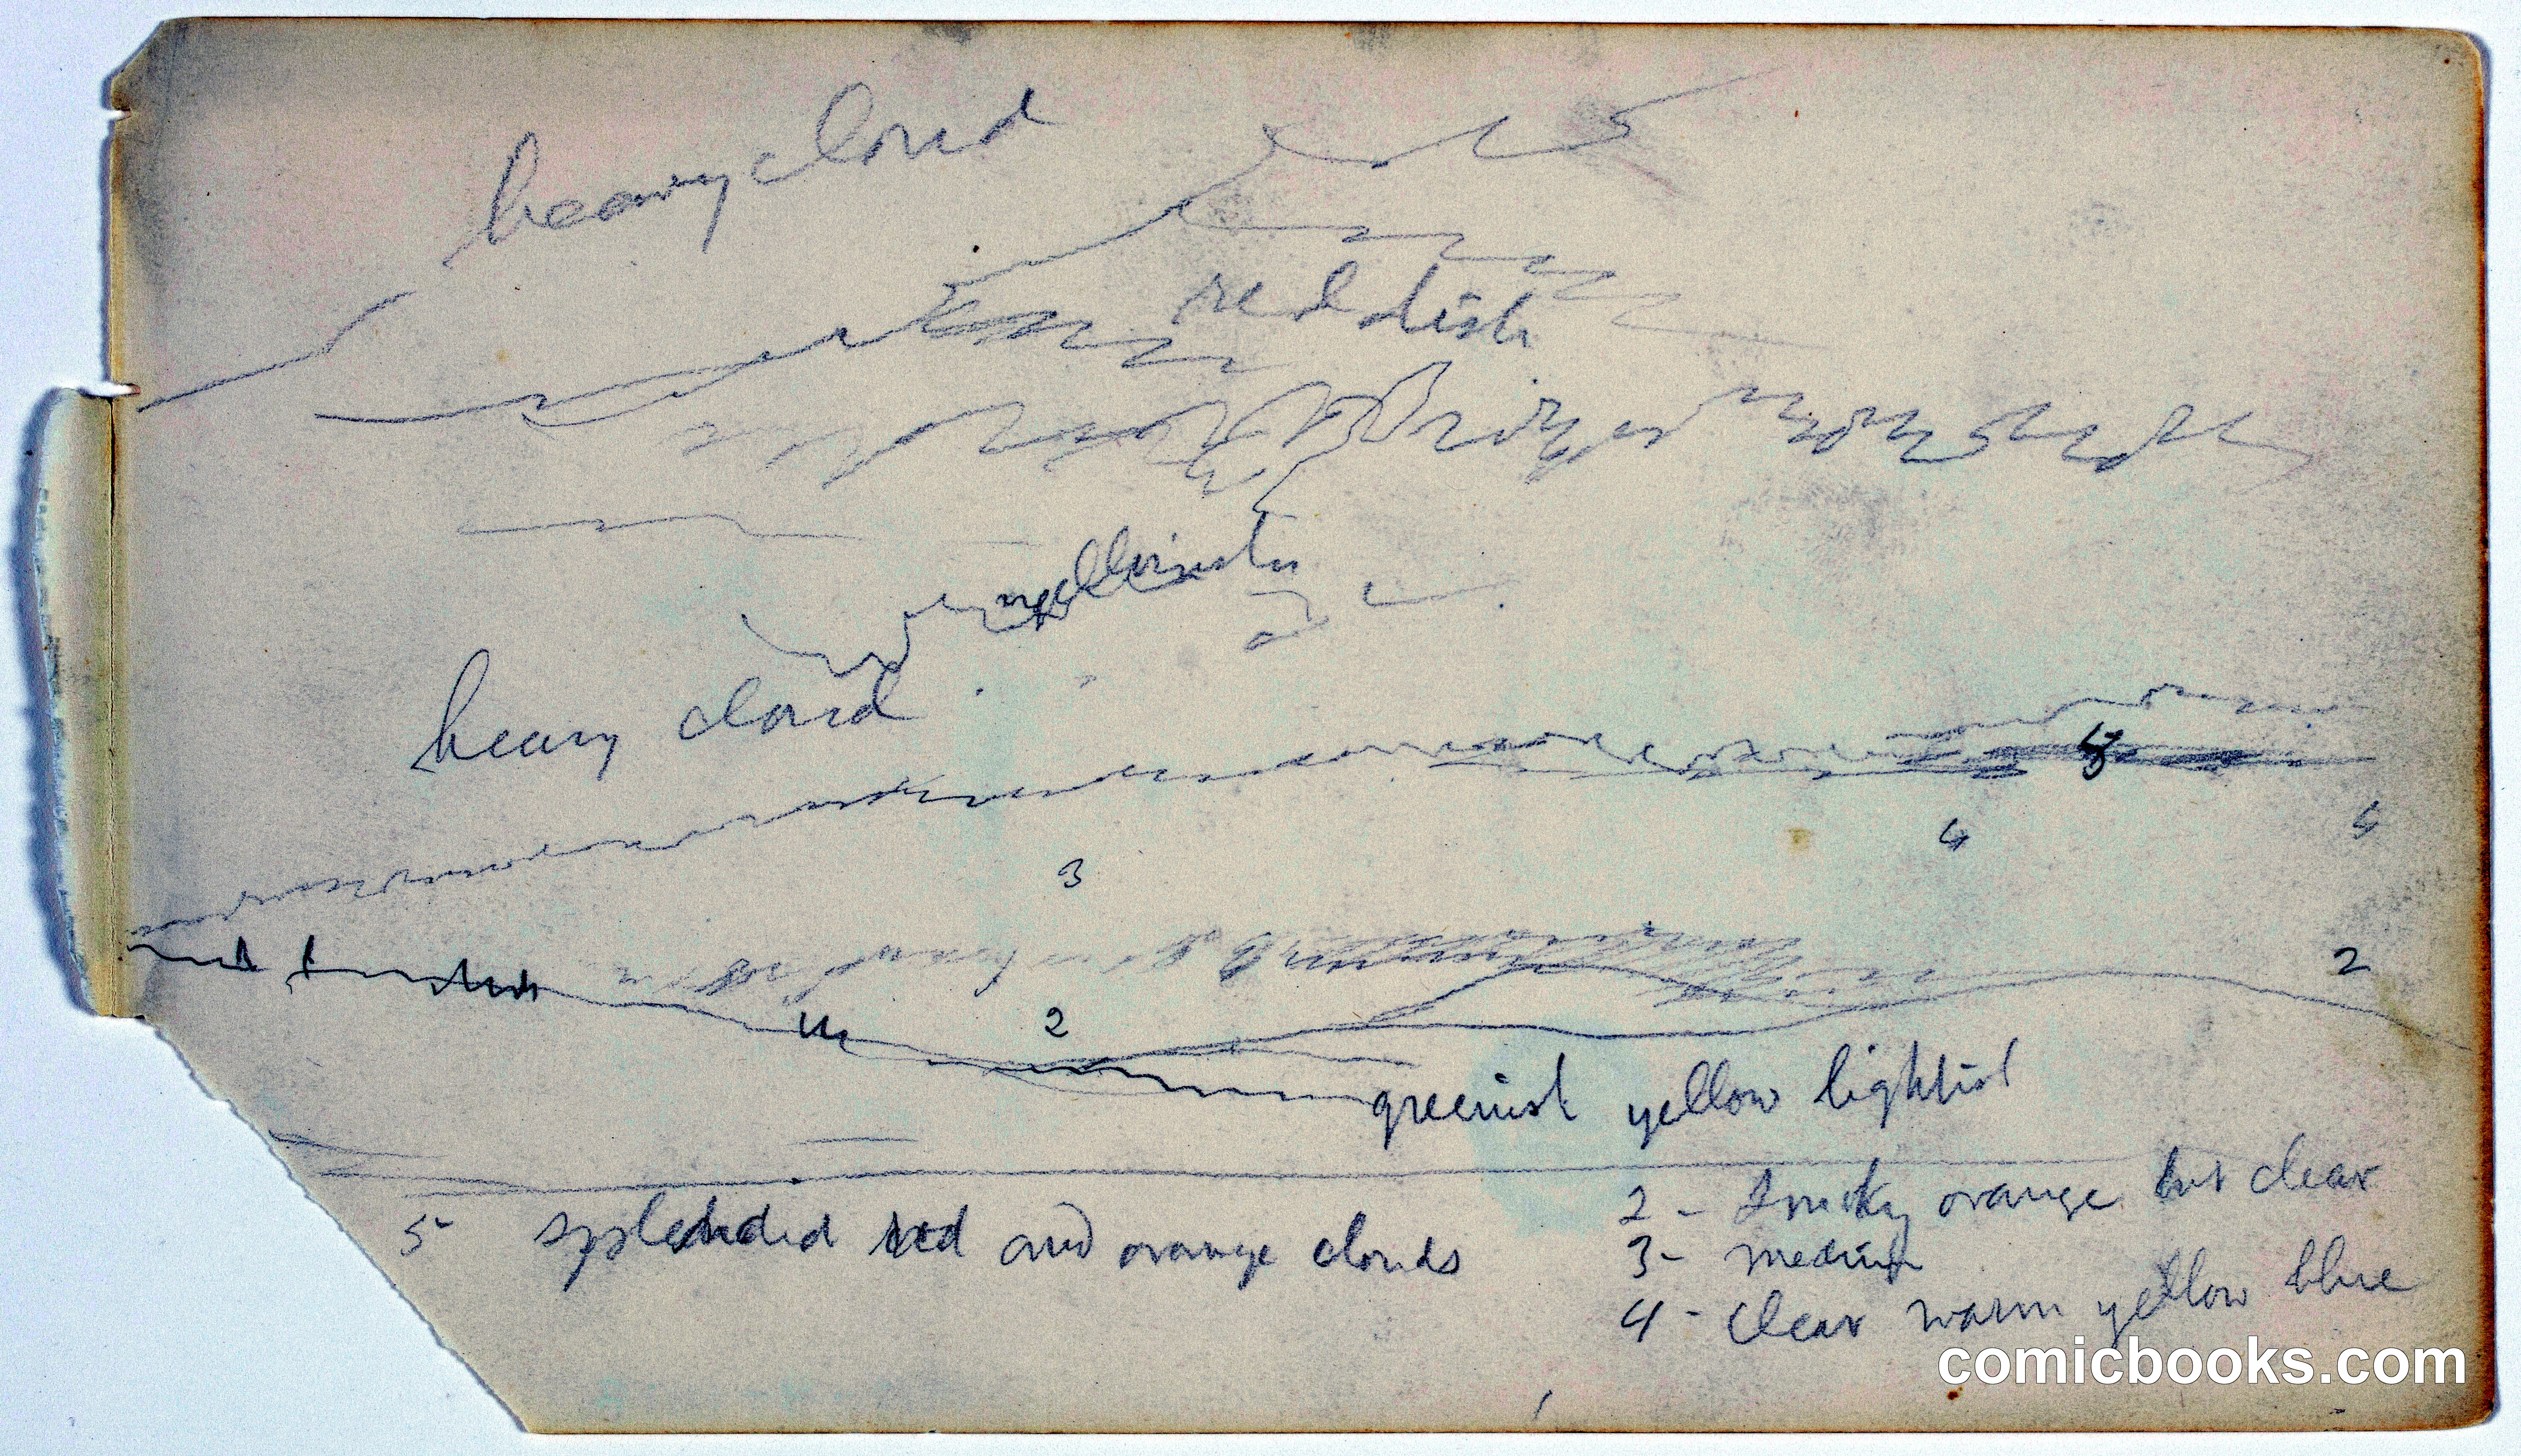 heavy cloud
reddish
yellowish
heavy cloud
5
4
3
2
2
greenish yellow lightish
2 - Smoky orange but clear
5 splended red and orange clouds
3- medium
4 - clear warm yellow blue
comicbooks.com